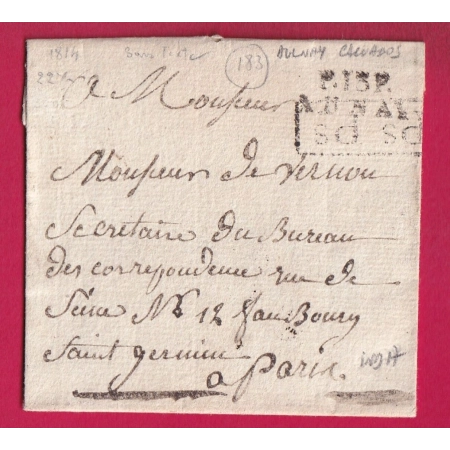 1814
183
AULNAY CALVADOS
22
P.15P.
AUNAY
SO SO
A Monsieur
Monsieur de Vernon
Secretaire du Bureau
des correpondence rue de
Seine No 12 fauBourg
Saint germin
a Paris